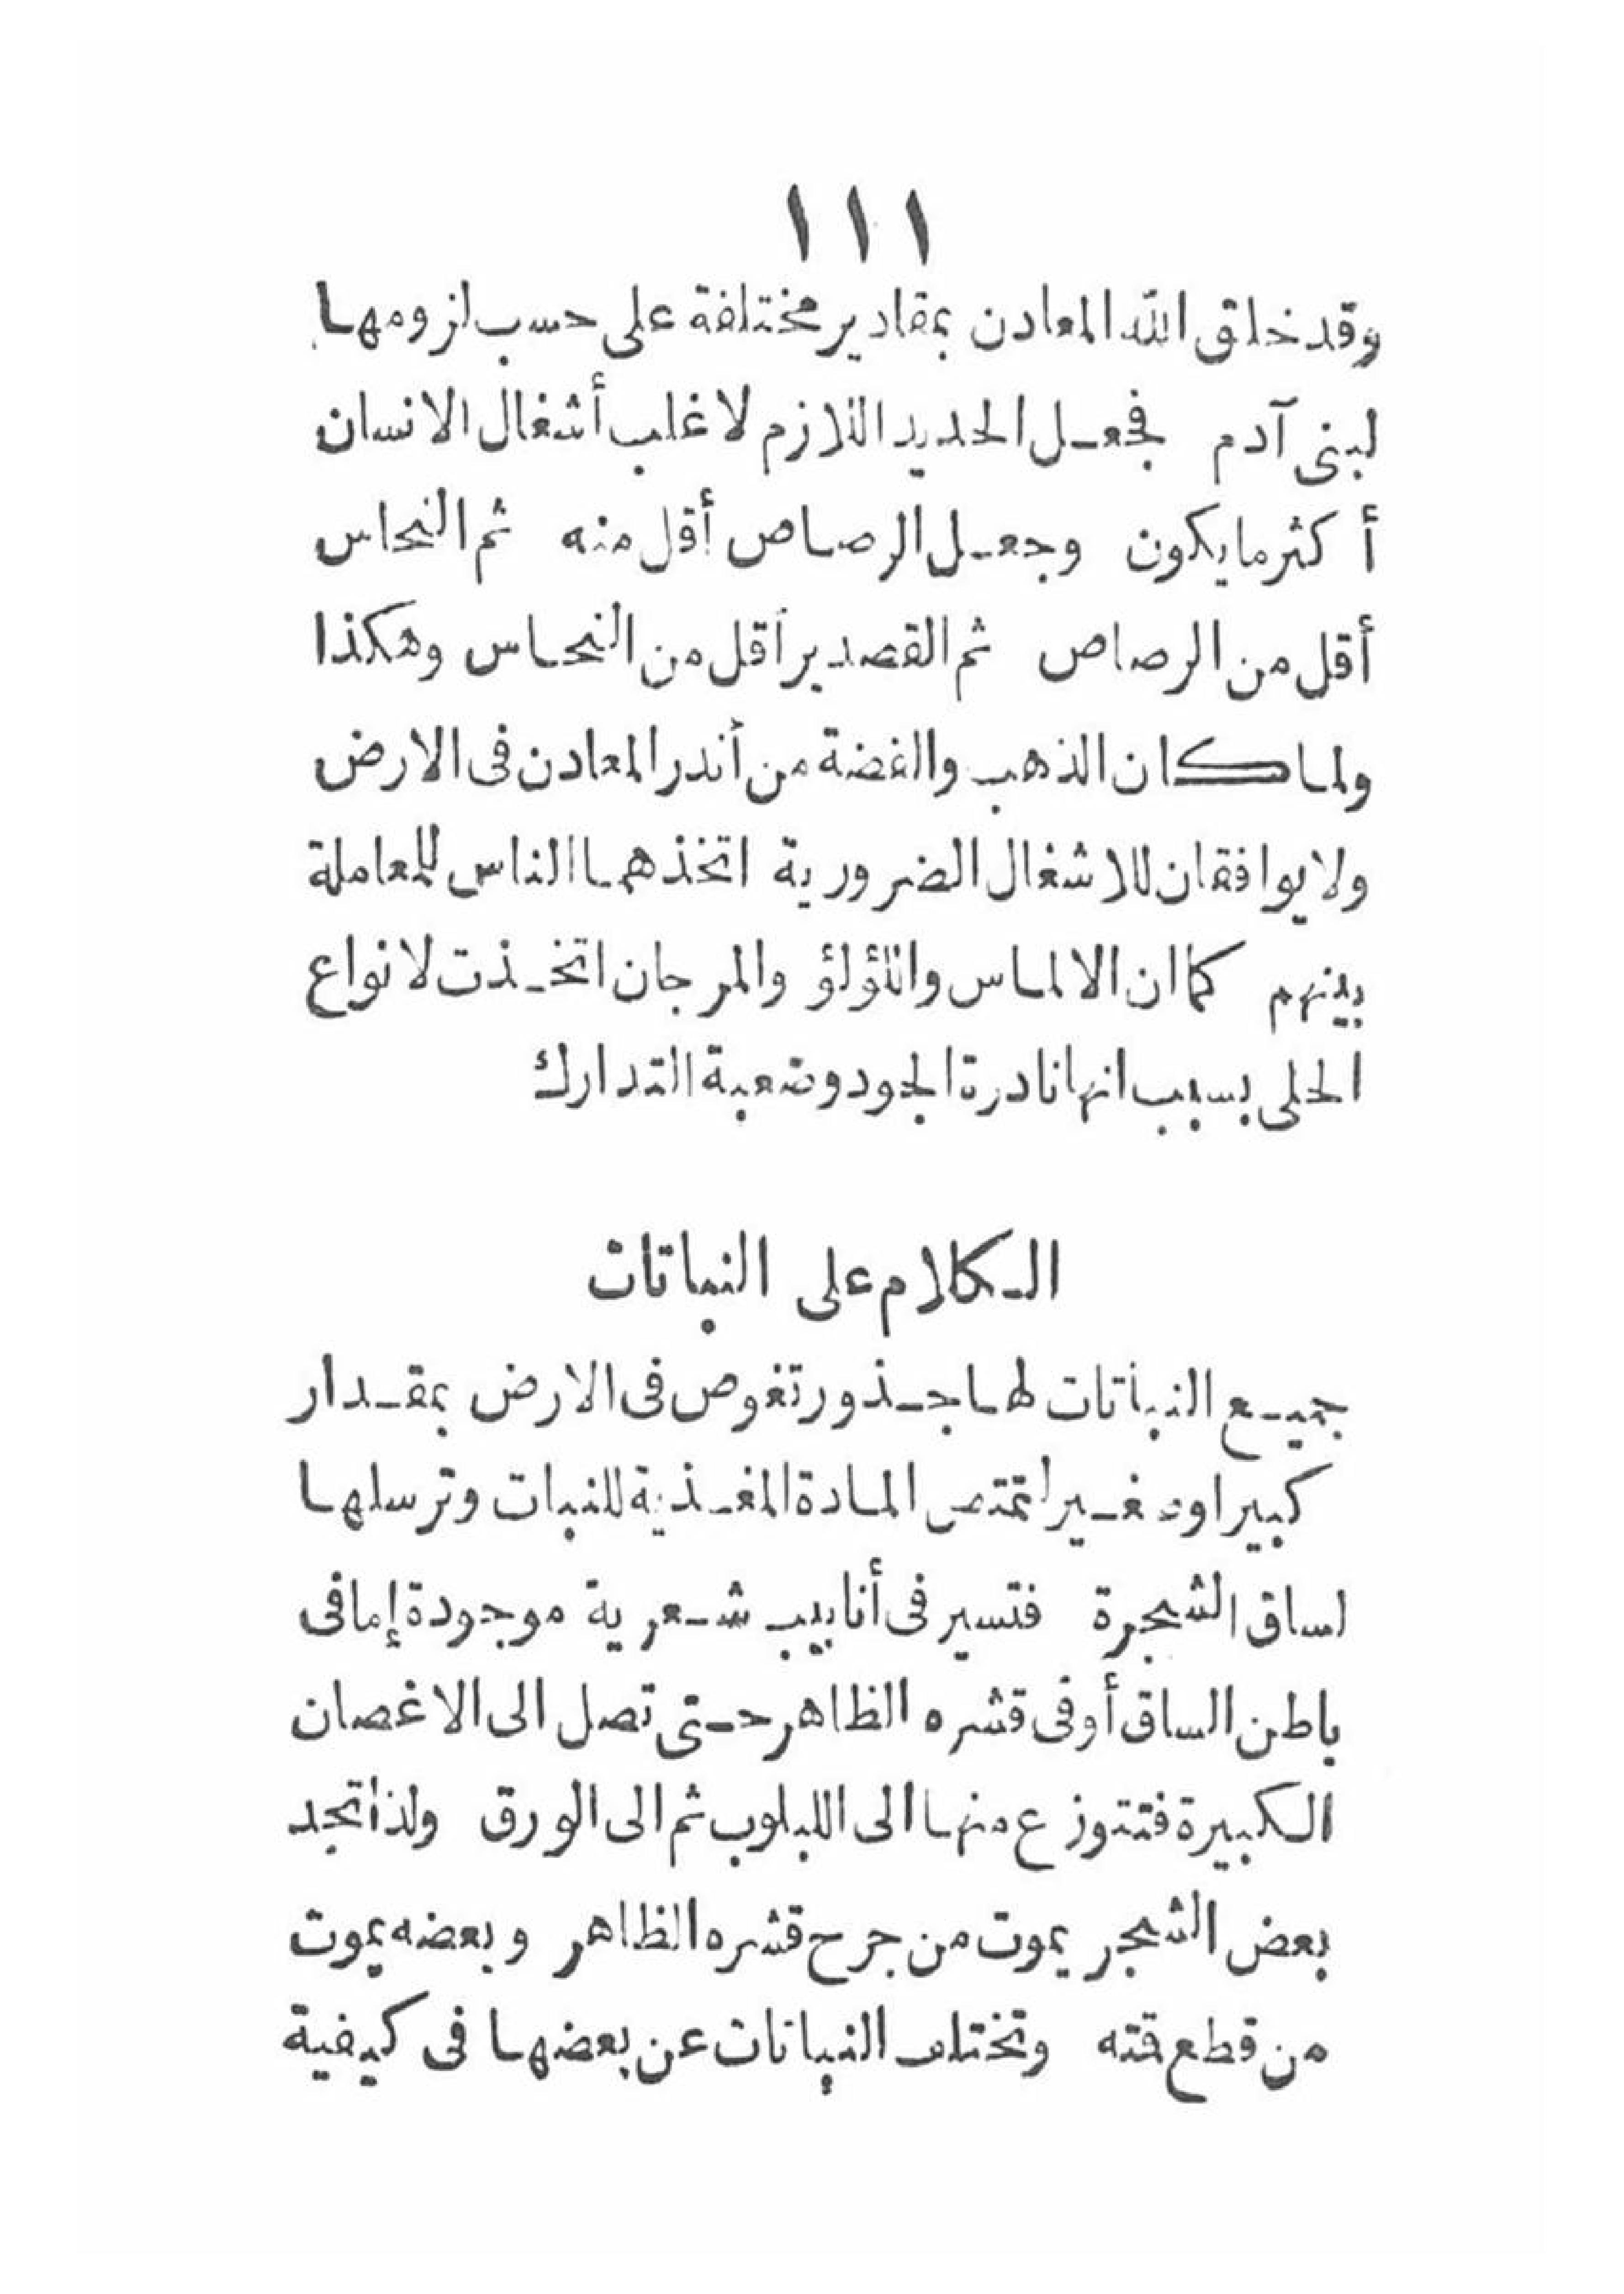 ١١١
وقد خلق الله المعادن بمقادير مختلفة على حسب لزومها
لبنى آدم فجعل الحديد اللازم لاغلب أشغال الانسان
أكثر ما يكون وجعل الرصاص أقل منه ثم النحاس
أقل من الرصاص ثم القصدير أقل من النحاس وهكذا
ولما كان الذهب والفضة من أندر المعادن فى الارض
ولا يوافقان للاشغال الضرورية اتخذهما الناس للمعاملة
بينهم كما ان الالماس واللؤلؤ والمرجان اتخذت لانواع
الحلى بسبب انها نادرة الجود وصعبة التدارك
الكلام على النباتات
جميع النباتات لها جذور تغوص فى الارض بمقدار
كبير او صغير لتمتص المادة المغذية للنبات وترسلها
لساق الشجرة فتسير فى أنابيب شعرية موجودة إما فى
باطن الساق أو فى قشره الظاهر حتى تصل الى الاغصان
الكبيرة فتتوزع منها الى اللبلوب ثم الى الورق ولذا تجد
بعض الشجر يموت من جرح قشره الظاهر وبعضه يموت
من قطع قمته وتختلف النباتات عن بعضها فى كيفية